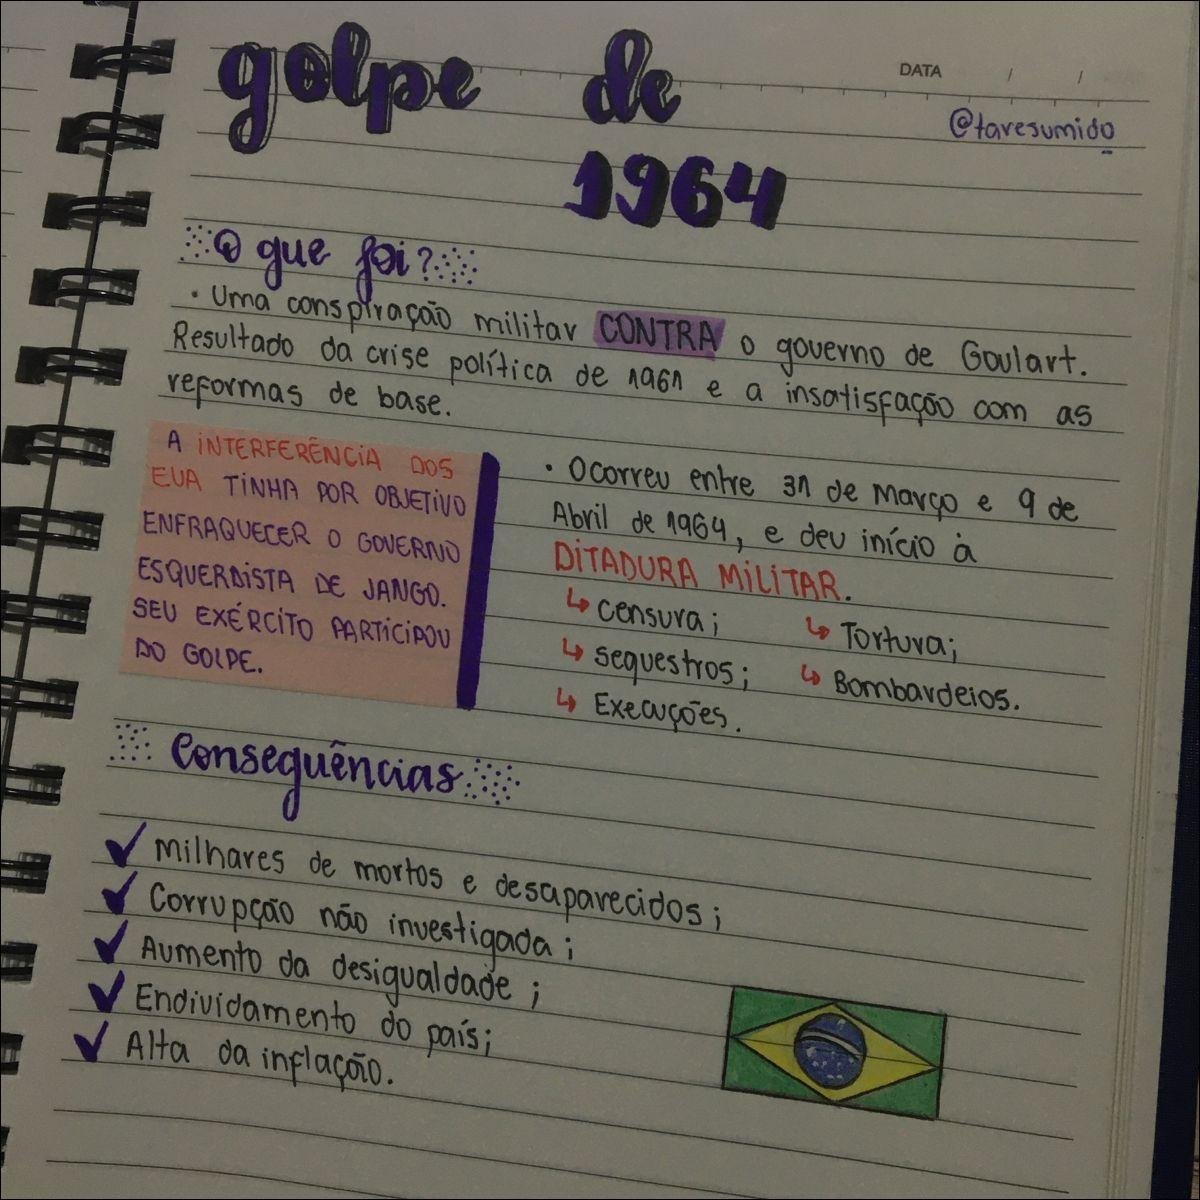 golpe de
1964
DATA / /
@taresumido
O que foi?
• Uma conspiração militar CONTRA o governo de Goulart.
Resultado da crise política de 1961 e a insatisfação com as
reformas de base.
A INTERFERÊNCIA DOS
EUA TINHA POR OBJETIVO
ENFRAQUECER O GOVERNO
ESQUERDISTA DE JANGO.
SEU EXÉRCITO PARTICIPOU
DO GOLPE.
• Ocorreu entre 31 de março e 9 de
Abril de 1964, e deu início à
DITADURA MILITAR.
↳ censura; ↳ Tortura;
↳ sequestros; ↳ Bombardeios.
↳ Execuções.
Consequências
✓ Milhares de mortos e desaparecidos;
✓ Corrupção não investigada;
✓ Aumento da desigualdade;
✓ Endividamento do país;
✓ Alta da inflação.